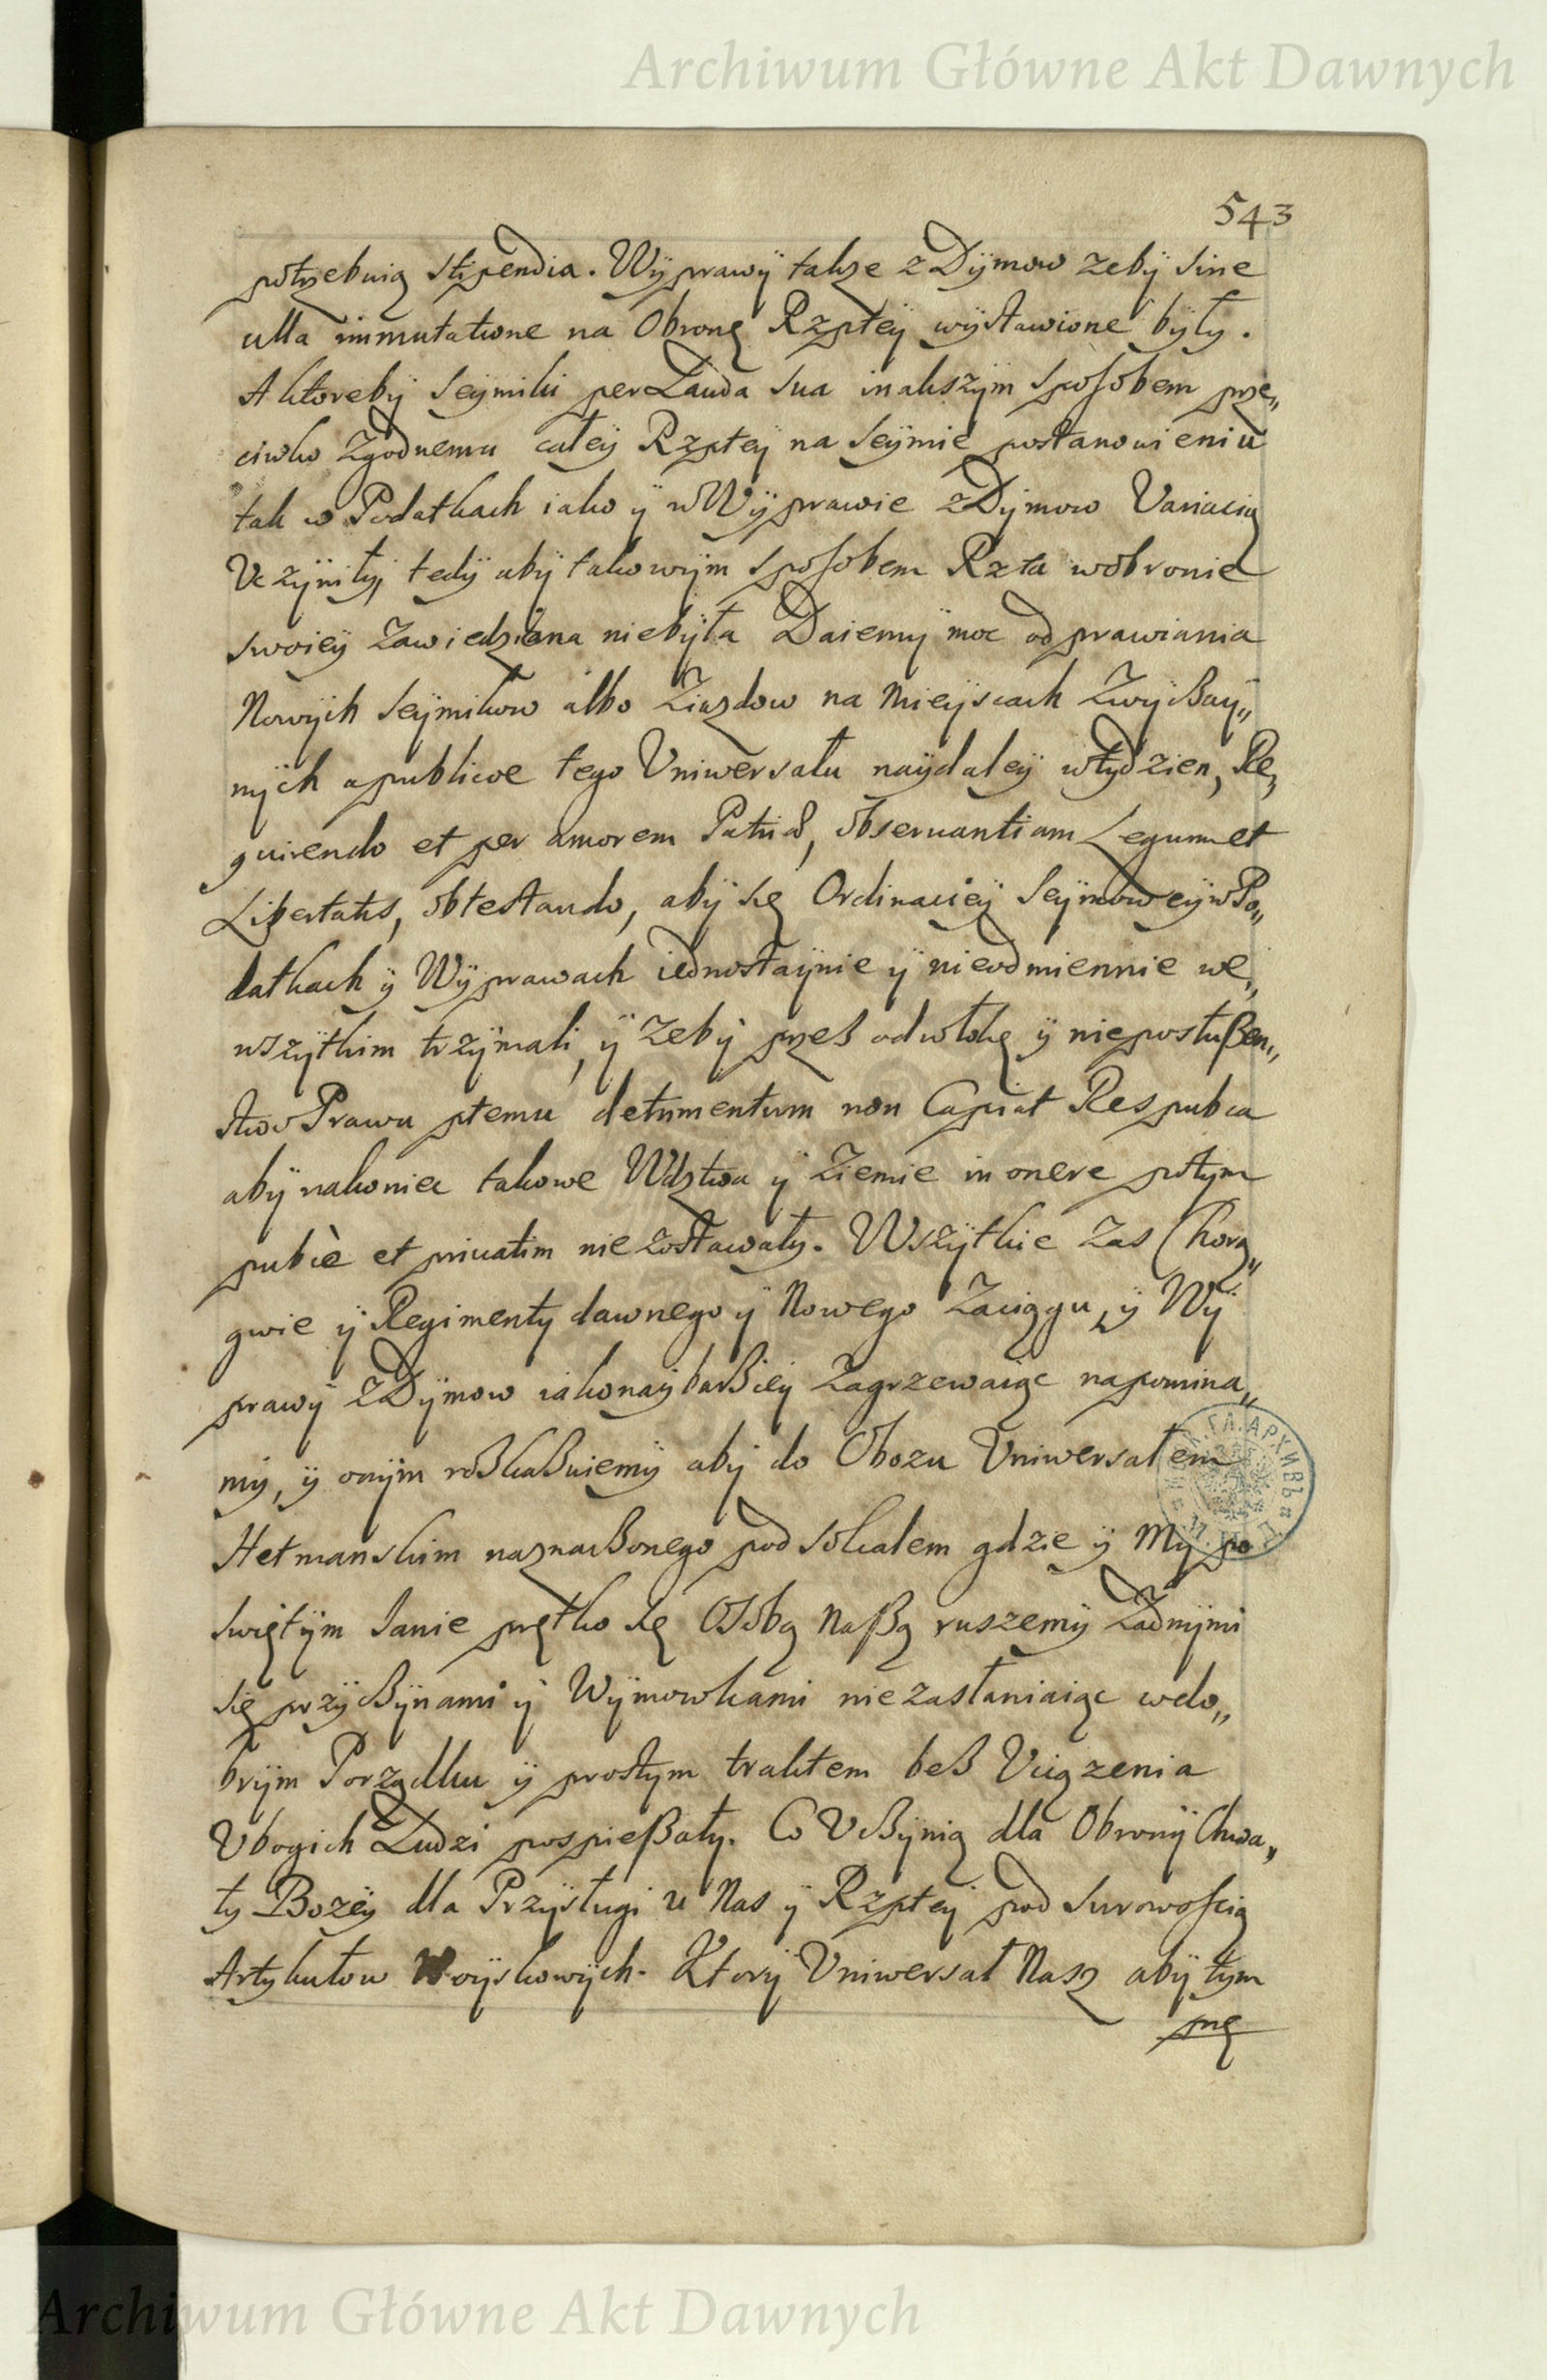 Archiwum Główne Akt Dawnych
543
potrzebuią stipendia. Wÿprawÿ takze z Dÿmow zebÿ sine
ulla immutatione na Obronę Rzpteÿ wÿstawione bÿłÿ.
A ktorebÿ Seÿmiki per Lauda sua inakszÿm sposobem prze„
ciwko Zgodnemu całeÿ Rzpteÿ na Seÿmie postanowieniu
tak w Podatkach iako ÿ w Wÿprawie z Dÿmow Variacią
Vczÿniłÿ, tedÿ abÿ takowÿm sposobem Rzta w obronie
swoieÿ Zawiedziona niebÿła Daiemÿ moc odprawiania
Nowÿch Seÿmikow albo Ziazdow na Mieÿscach Zwÿßaÿ„
nÿch a publicoe tego Vniwersału naÿdaleÿ w tÿdzien, Re„
quirendo et per amorem Patriæ, observantiam Legum et
Libertatis, obtestando, abÿ się Ordinacieÿ Seÿmoweÿ w Po„
datkach ÿ Wÿprawach iednostaÿnie ÿ nieodmiennie we„
wszÿtkim trzÿmali, ÿ Zebÿ przeß odwłokę ÿ nieposłußen„
stwo Prawu ptemu detrimentum non Capiat Respubca
abÿ nakoniec takowe Wdztwa ÿ Ziemie in onere potym
pubcè et privatim nie zostawałÿ. Wszÿtkie Zas Chorą„
gwie ÿ Regimentÿ dawnego ÿ Nowego Zaciągu, ÿ Wÿ
prawÿ z Dÿmow iakonaÿbarßieÿ Zagrzewaiąc napomina„
mÿ, ÿ onÿm roßkaßuiemÿ abÿ do Obozu Vniwersałem
Hetmanskim naznaßonego pod Sokalem gdzie ÿ Mÿ po
swiętÿm Janie prętko się Osobą Naßą ruszemÿ Zadnÿmi
się przÿßÿnami ÿ Wÿmowkami niezasłaniaiąc w do„
brÿm Porządku ÿ prostÿm traktem beß Vciązenia
Vbogich Ludzi pospießałÿ. Co Vßÿnią dla Obronÿ Chwa„
łÿ Bozeÿ dla Przÿsługi u Nas ÿ Rzpteÿ pod Surowoscią
Artykułow Woÿskowÿch. Ktorÿ Vniwersał Nasz abÿ tÿm
prę
Archiwum Główne Akt Dawnych